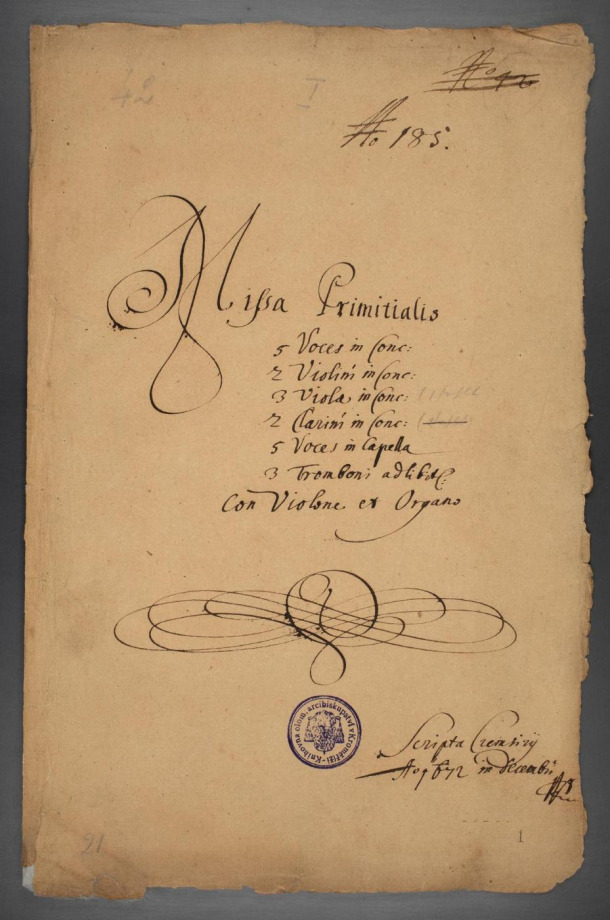 42
I
No 185.
Missa Primitialis
5 Voces in Conc:
2 Violini in Conc:
3 Viola in Conc:
2 Clarini in Conc:
5 Voces in Capella
3 Tromboni ad libit:
Con Violone et Organo
Knihovna olom. arcibiskupství v Kroměříži
Scripta Cremsirij
Ao 1672 in decembri
21
1